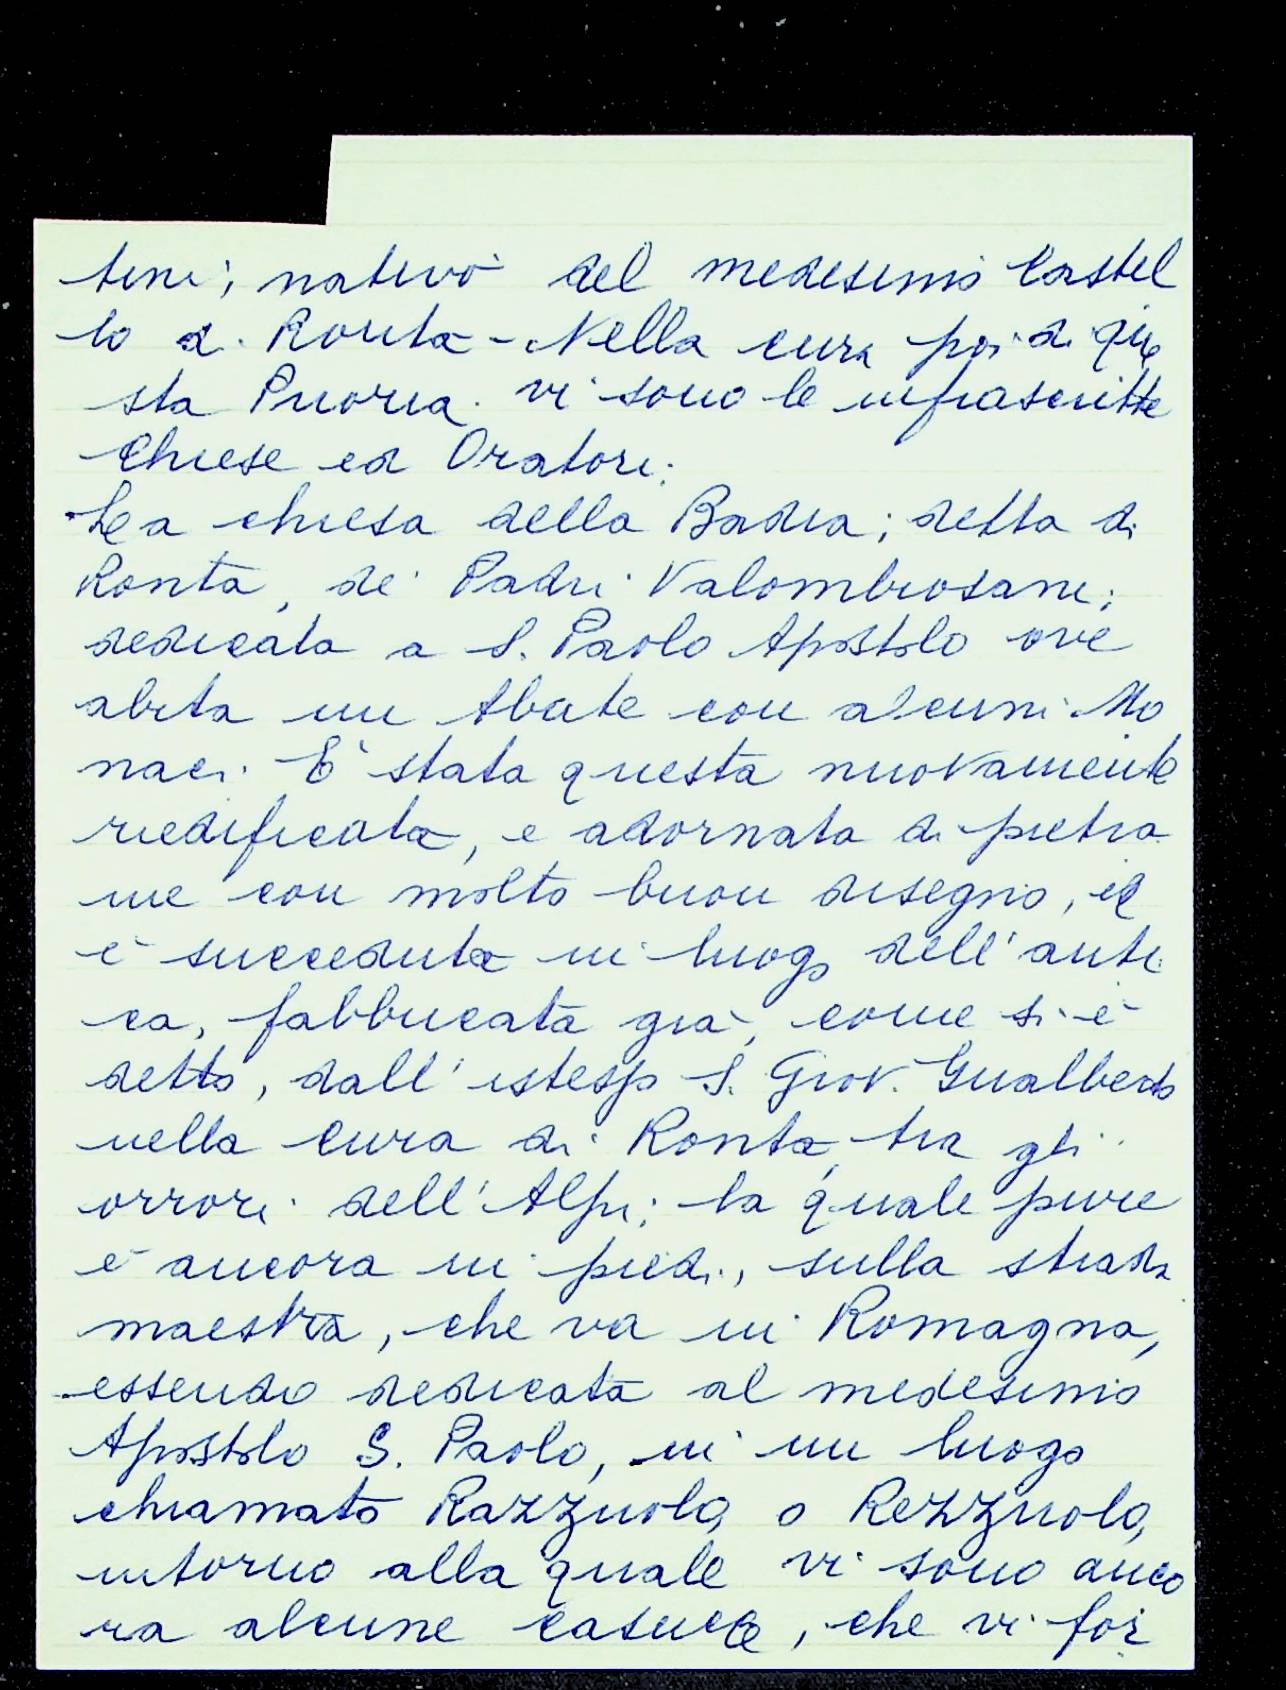 tini, nativo del medesimo Castel
lo di Ronta - Nella cura poi di que
sta Prioria vi sono le infrascritte
Chiese ed Oratori:
La chiesa della Badia; detta di
Ronta, de' Padri Valombrosani;
dedicata a S. Paolo Apostolo ove
abita un Abate con alcuni Mo
naci. È stata questa nuovamente
riedificata, e adornata di pietra
me con molto buon disegno, ed
è succeduta in luogo dell'anti
ca, fabbricata già, come si è
detto, dall'istesso S. Giov. Gualberto
nella Cura di Ronta, tra gli
orrori dell'Alpi; la quale pure
è ancora in piedi, sulla strada
maestra, che va in Romagna,
essendo dedicata al medesimo
Apostolo S. Paolo, in un luogo
chiamato Razzuolo, o Rezzuolo,
intorno alla quale vi sono anco
ra alcune casucce, che vi for